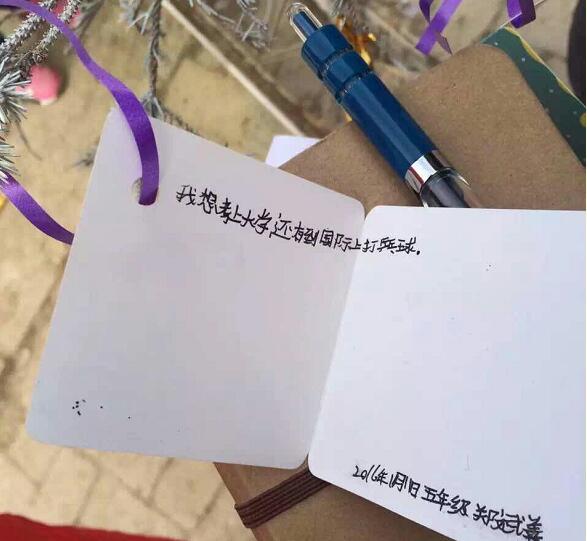 我想考上大学还有到国际上打乒球.
2016年1月1日五年级 郑冠武善